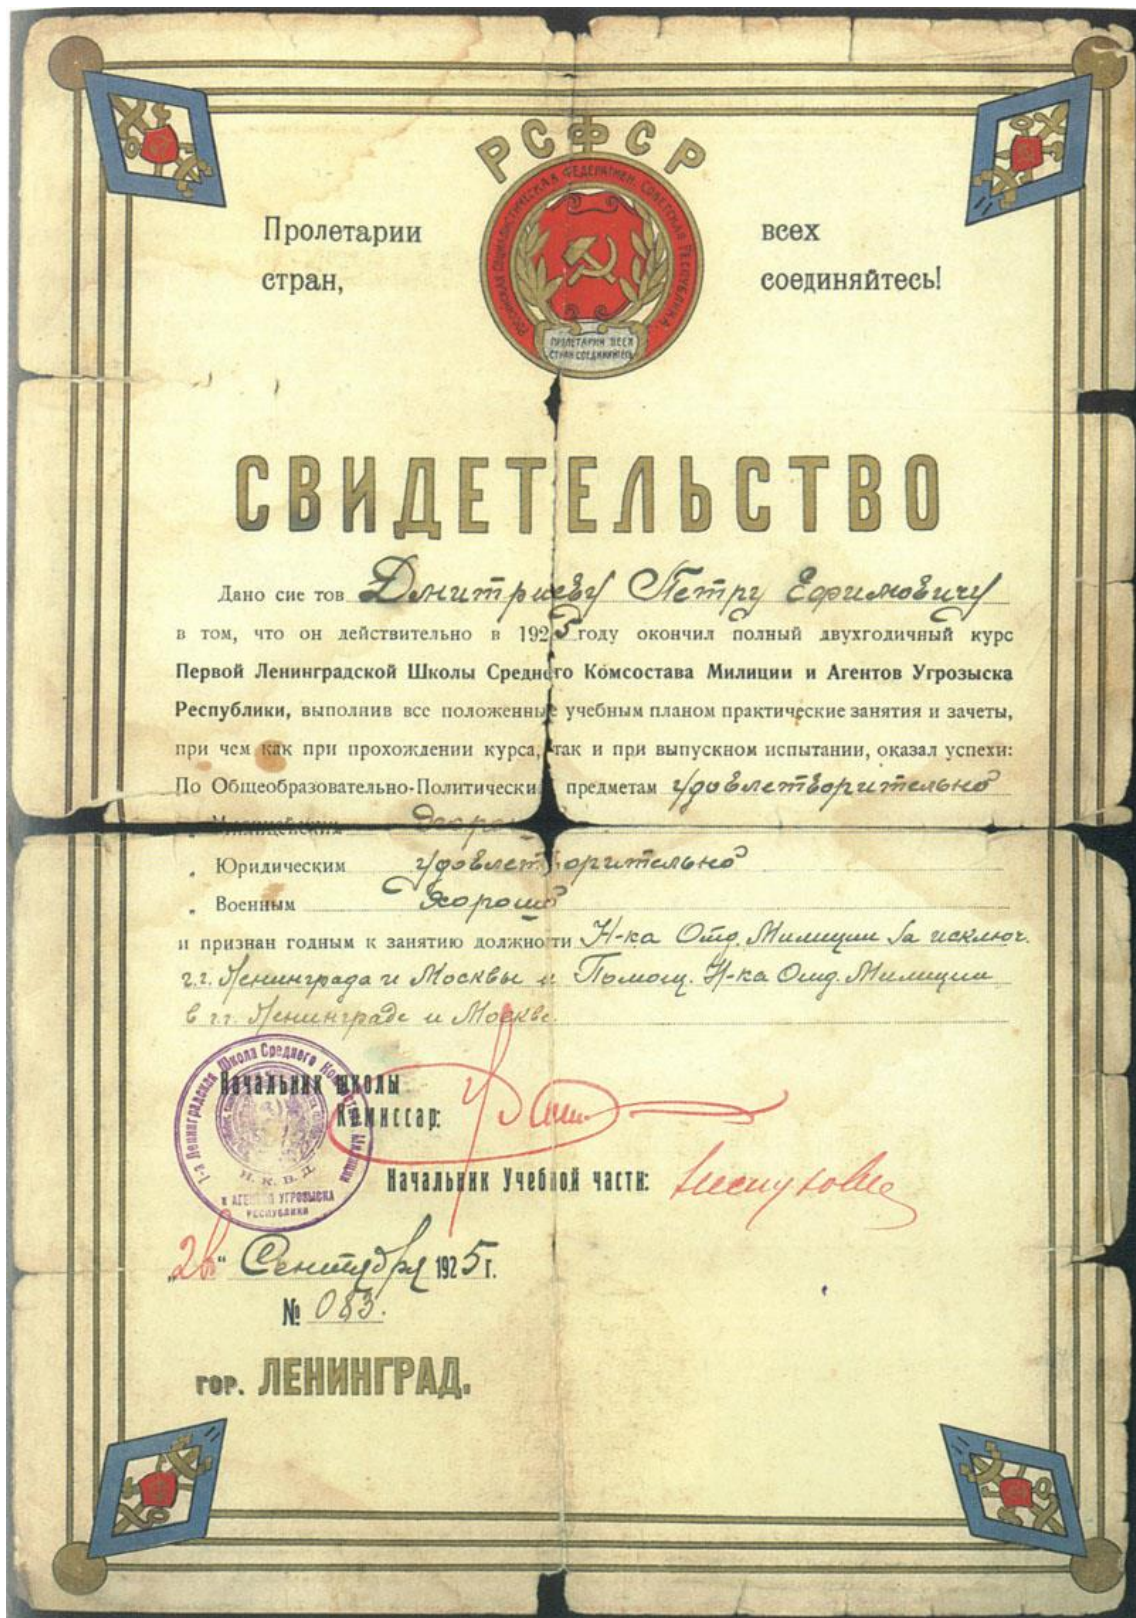 РСФСР
РОССИЙСКАЯ СОЦИАЛИСТИЧЕСКАЯ ФЕДЕРАТИВН. СОВЕТСКАЯ РЕСПУБЛИКА
Пролетарии всех
стран, соединяйтесь!
ПРОЛЕТАРИИ ВСЕХ
СТРАН СОЕДИНЯЙТЕСЬ
СВИДЕТЕЛЬСТВО
Дано сие тов Дмитриеву Петру Ефимовичу
в том, что он действительно в 1925 году окончил полный двухгодичный курс
Первой Ленинградской Школы Среднего Комсостава Милиции и Агентов Угрозыска
Республики, выполнив все положенные учебным планом практические занятия и зачеты,
при чем как при прохождении курса, так и при выпускном испытании, оказал успехи:
По Общеобразовательно-Политически предметам удовлетворительно
„ Милицейским
„ Юридическим удовлетворительно
„ Военным хорошо
и признан годным к занятию должности Н-ка Отд. Милиции за исключ.
г.г. Ленинграда и Москвы и Помощ. Н-ка Отд. Милиции
в г.г. Ленинграде и Москве.
1-я Ленинградская Школа Среднего Комсостава Милиции
Н. К. В. Д.
и АГЕНТОВ УГРОЗЫСКА
РЕСПУБЛИКИ
Начальник школы
Комиссар:
Начальник Учебной части:
Сентября 1925 г.
№ 083.
гор. ЛЕНИНГРАД.